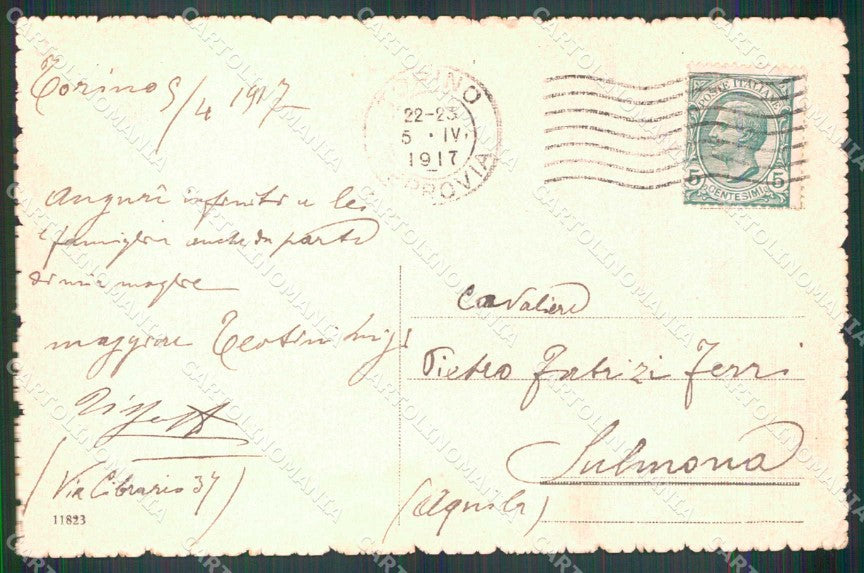 Torino 5/4 1917
TORINO
22-23
5 · IV
1917
FERROVIA
POSTE ITALIANE
5 5
CENTESIMI
Auguri infiniti a lei
e famiglia anche da parte
di mia moglie
maggiore Teotini Luigi
(Via Cibrario 37)
11823
Cavaliere
Pietro Fabrizi Ferri
Sulmona
(Aquila)
CARTOLINOMANIA